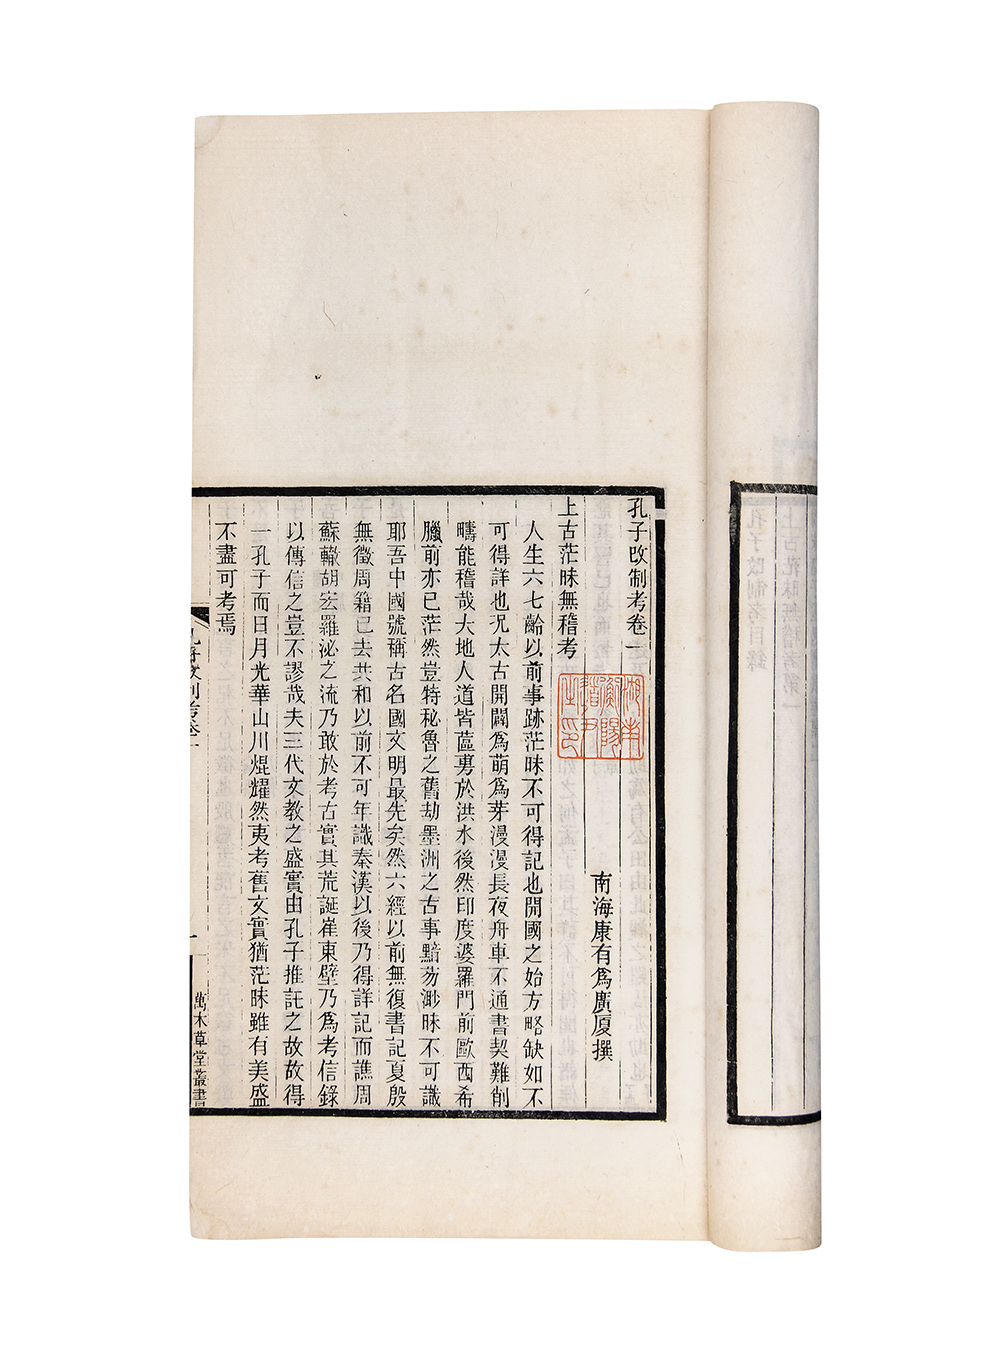 孔子改制考卷一
南海康有爲廣厦撰
上古茫昧無稽考
人生六七齡以前事跡茫昧不可得記也開國之始方略缺如不
可得詳也况太古開闢爲萌爲芽漫漫長夜舟車不通書契難削
疇能稽哉大地人道皆蓲㽔於洪水後然印度婆羅門前歐西希
臘前亦已茫然豈特秘魯之舊劫墨洲之古事黯芴渺昧不可識
耶吾中國號稱古名國文明最先矣然六經以前無復書記夏殷
無徵周籍已去共和以前不可年識秦漢以後乃得詳記而譙周
蘇轍胡宏羅泌之流乃敢於考古實其荒誕崔東壁乃爲考信錄
以傳信之豈不謬哉夫三代文教之盛實由孔子推託之故故得
一孔子而日月光華山川焜耀然夷考舊文實猶茫昧雖有美盛
不盡可考焉
孔子改制考卷一
一
萬木草堂叢書
孔子改制考目錄
上古茫昧無稽考第一